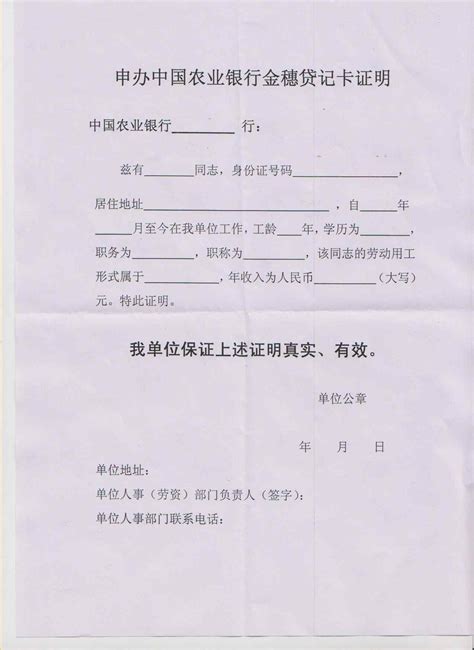 申办中国农业银行金穗贷记卡证明
中国农业银行________ 行：
兹有______同志，身份证号码________________，
居住地址______________________ ，自____年
____月至今在我单位工作，工龄___年，学历为_____，
职务为______，职称为______，该同志的劳动用工
形式属于_______，年收入为人民币________（大写）
元。特此证明。
我单位保证上述证明真实、有效。
单位公章
年 月 日
单位地址：
单位人事（劳资）部门负责人（签字）：
单位人事部门联系电话：